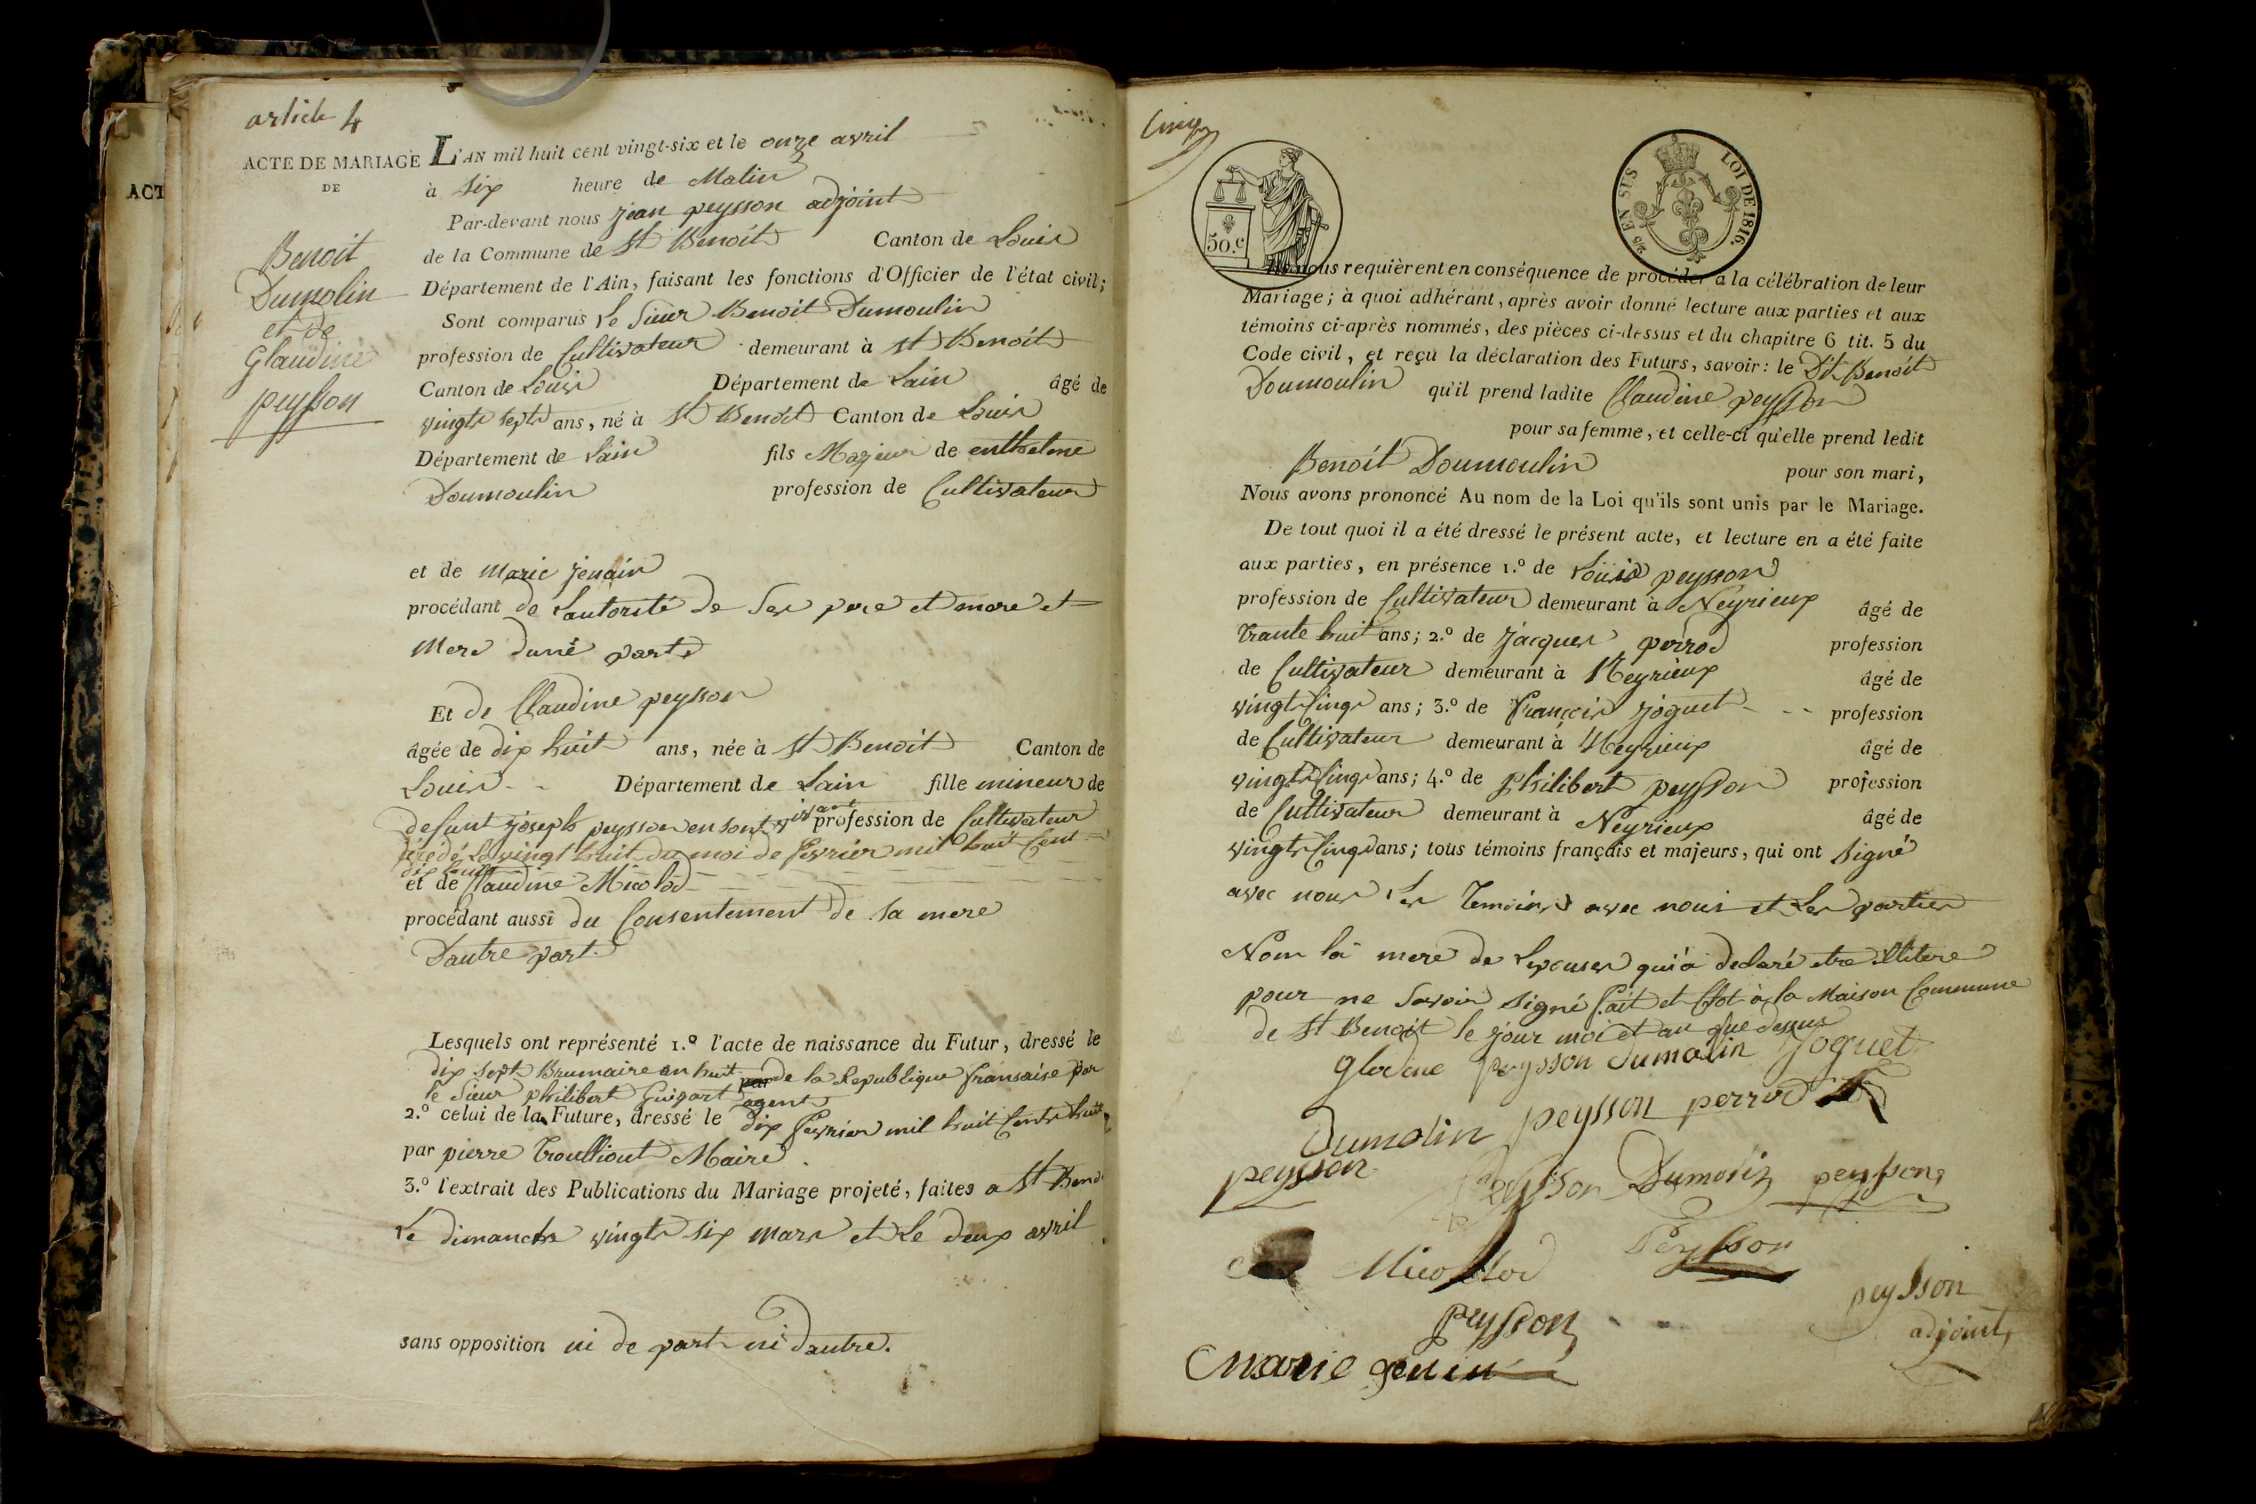 article 4
ACTE DE MARIAGE
DE
Benoit
Dumolin
et de
Glaudine
peysson
ACT
L'AN mil huit cent vingt-six et le onze avril
à six heure de Matin
Par-devant nous jean peysson adjoint
de la Commune de St Benoit Canton de Louis
Département de l'Ain, faisant les fonctions d'Officier de l'état civil;
Sont comparus le sieur Benoit Dumoulin
profession de Cultivateur demeurant à St Benoit
Canton de Louis Département de Lain âgé de
vingt sept ans, né à St Benoit Canton de Louis
Département de Lain fils Majeur de enthelme
Doumoulin profession de Cultivateur
et de Marie jenain
procédant de Lautorité de Ses pere et mere et
Mere dune part
Et de Claudine peysson
âgée de dix huit ans, née à St Benoit Canton de
Louis Département de Lain fille mineur de
defunt joseph peysson en sont vivant profession de Cultivateur
décédé le vingt huit du moi de fevrier mil huit Cent
dix huit
et de Claudine Micolod
procédant aussi du Consentement de sa mere
Dautre part.
Lesquels ont représenté 1.º l'acte de naissance du Futur, dressé le
dix sept Brumaire an huit par de la Republique fransaise par
le Sieur philibert Guigart agent
2.º celui de la Future, dressé le dix fevrier mil huit Cents huit
par pierre Trouilliout Maire
3.º l'extrait des Publications du Mariage projeté, faites a St Beno
Le dimanche vingt six mars et Le deux avril
sans opposition ni de part ni dautre.
Cinq
50.c
25 EN SUS
LOI DE 1816.
Ils nous requièrent en conséquence de procéder à la célébration de leur
Mariage; à quoi adhérant, après avoir donné lecture aux parties et aux
témoins ci-après nommés, des pièces ci-dessus et du chapitre 6 tit. 5 du
Code civil, et reçu la déclaration des Futurs, savoir: le Dit Benoit
Doumoulin qu'il prend ladite Claudine peysson
pour sa femme, et celle-ci qu'elle prend ledit
Benoit Doumoulin pour son mari,
Nous avons prononcé Au nom de la Loi qu'ils sont unis par le Mariage.
De tout quoi il a été dressé le présent acte, et lecture en a été faite
aux parties, en présence 1.º de Louis peysson
profession de Cultivateur demeurant à Neyrieux âgé de
trante huit ans; 2.º de jacques perrod profession
de Cultivateur demeurant à Neyrieux âgé de
vingt Cinq ans; 3.º de françois joguet profession
de Cultivateur demeurant à Neyrieux âgé de
vingt Cinq ans; 4.º de philibert peysson profession
de Cultivateur demeurant à Neyrieux âgé de
vingt Cinq ans; tous témoins français et majeurs, qui ont signé
avec nous Les Temoins avec nous et Les parties
Nom la mere de Lepouses qui a declaré etre illitere
pour ne savoir signé fait et Clot à la Maison Commune
de St Benoit le jour moi et an que dessus
glodine peysson dumolin joguet
Dumolin peysson perrod
peysson peysson Dumolin peysson
Micollod Peysson
peysson
peysson
adjoint
marie genin